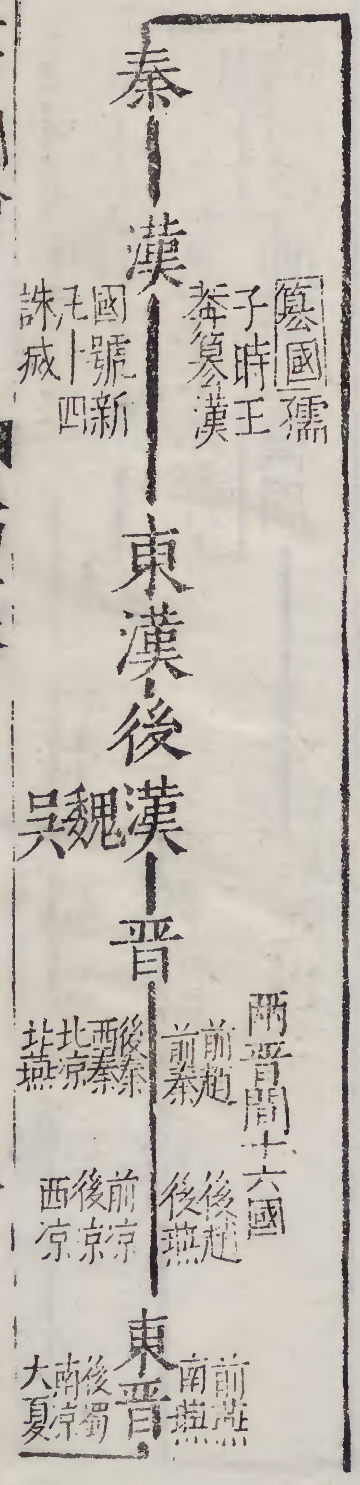 秦
漢
篡國孺
子時王
莽篡漢
國號新
凡十四
誅滅
東漢
後漢
魏
吳
晋
兩晋間十六國
前趙
前秦
後秦
西秦
北凉
北燕
後趙
後燕
前凉
後凉
西凉
東晋
前燕
南燕
後蜀
南凉
大夏